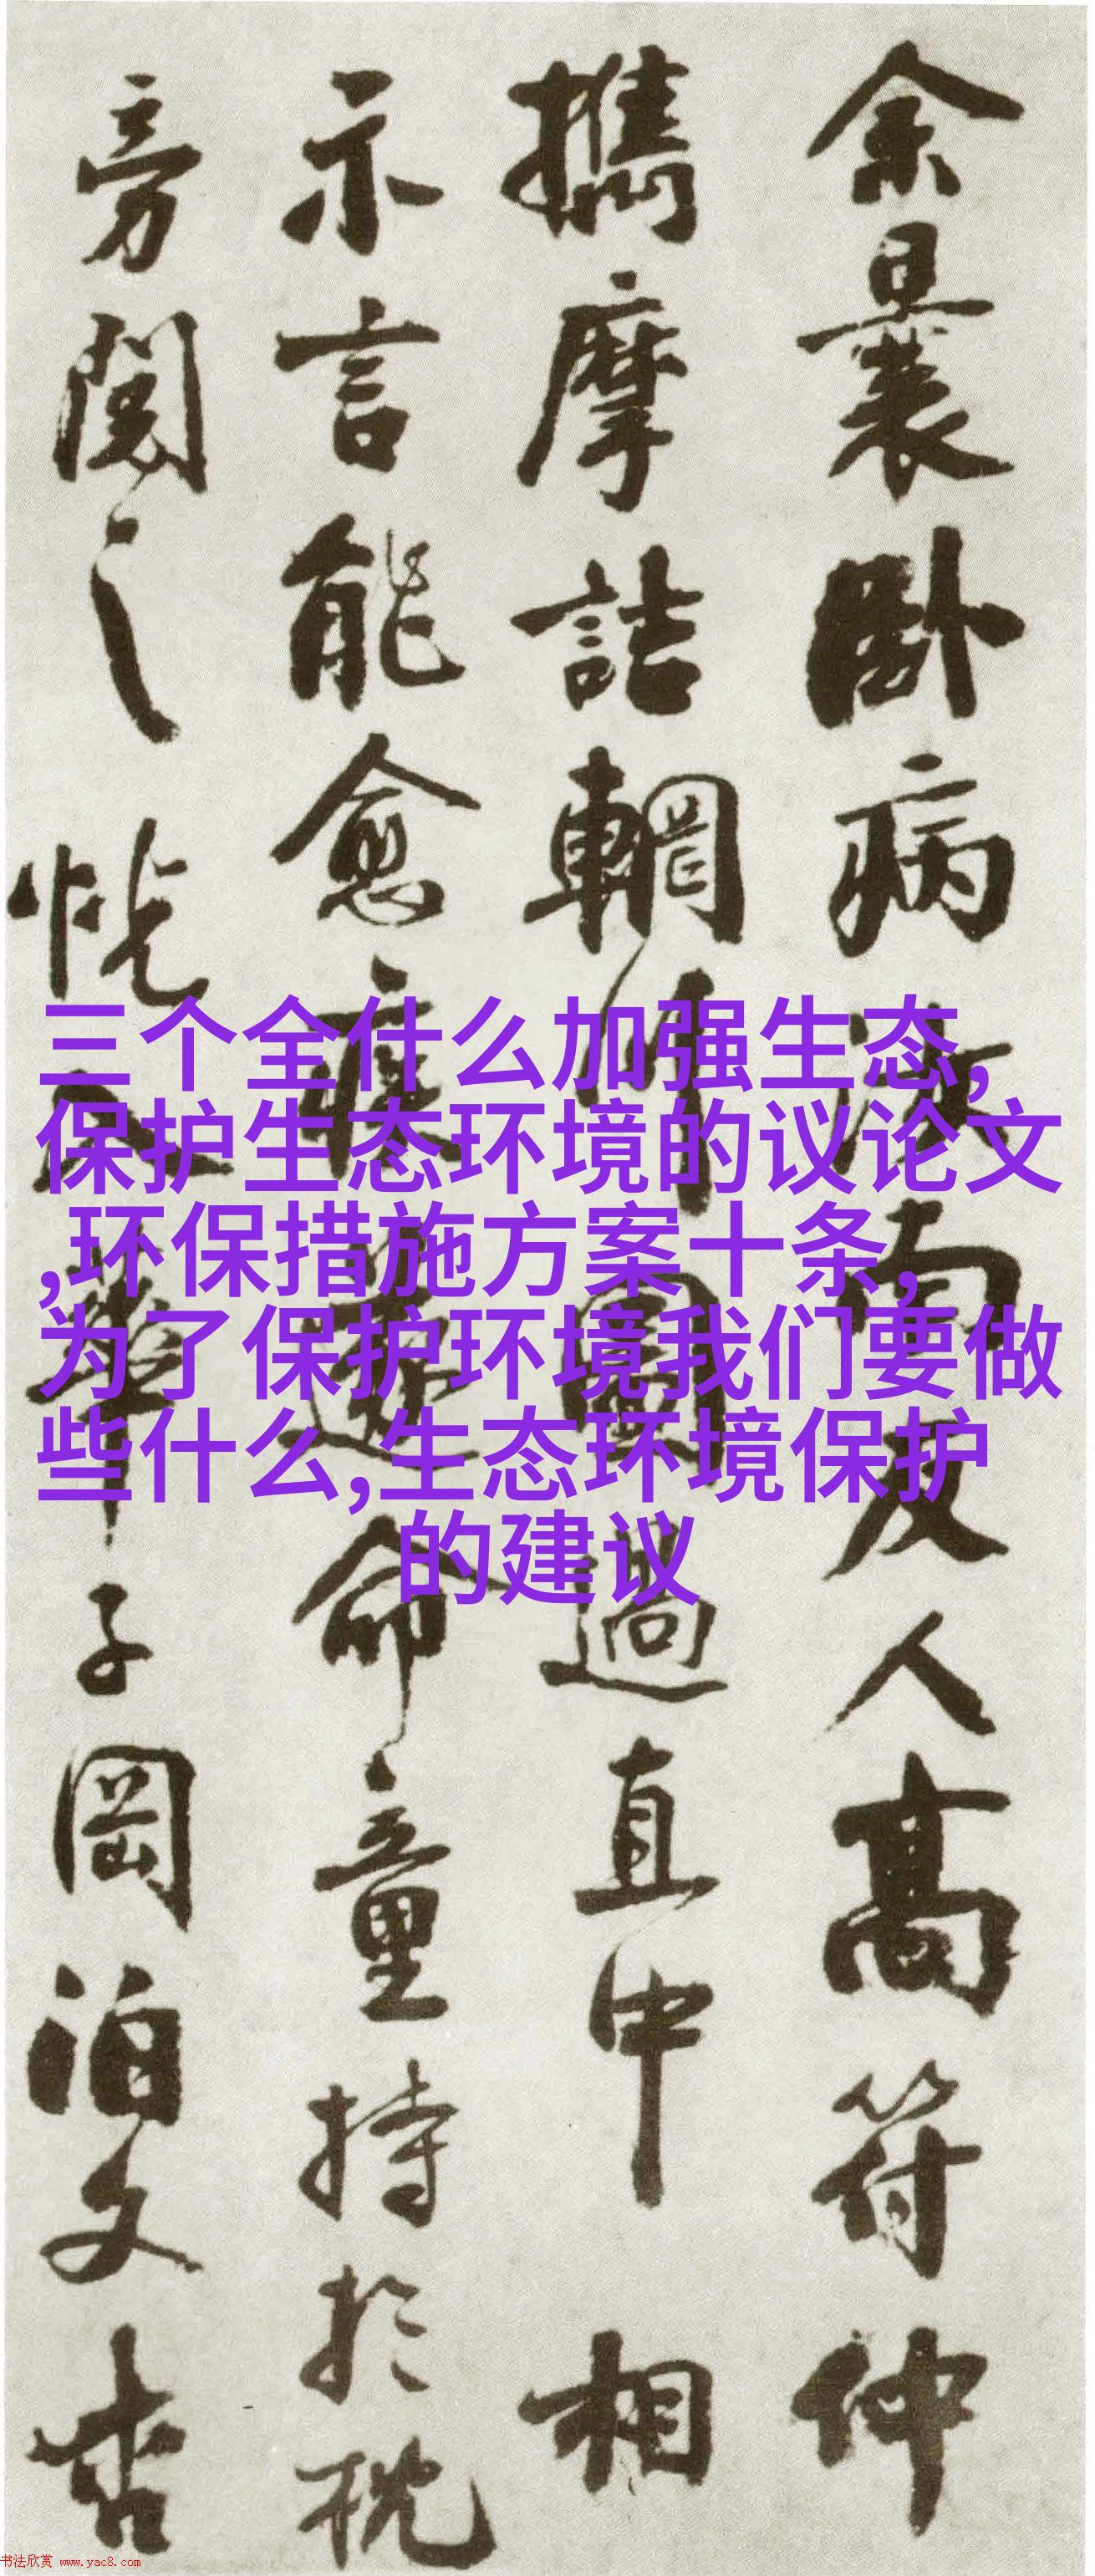 余曩卧病汝南友人高符仲
攜摩詰輞川圖過直中相
示言能愈疾遂命童持於枕
旁閱之恍入華子岡泊文杏
三个全什么加强生态,
保护生态环境的议论文
,环保措施方案十条,
为了保护环境我们要做
些什么,生态环境保护
的建议
书法欣赏 www.yac8.com